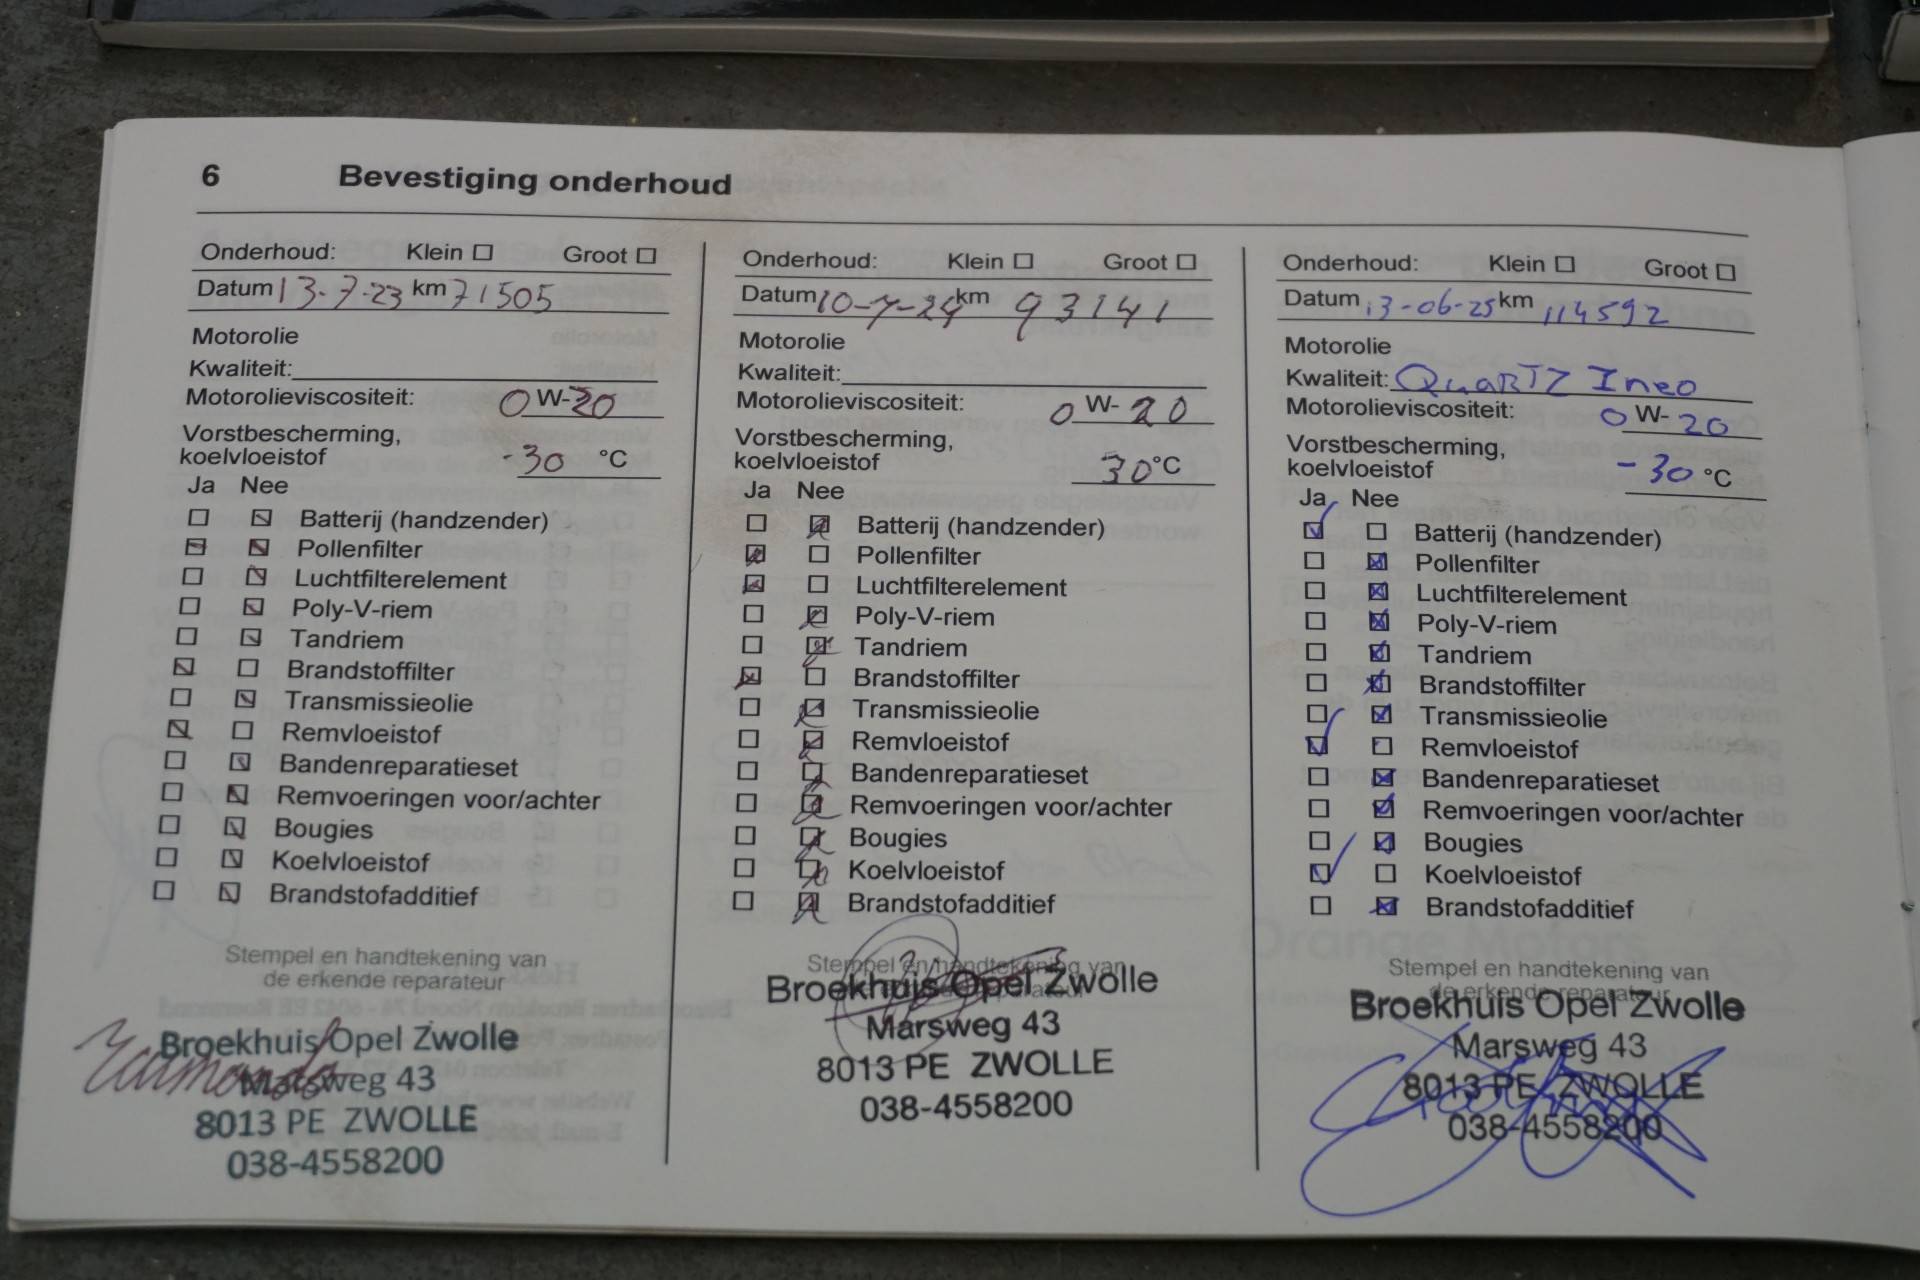 6 Bevestiging onderhoud
Onderhoud: Klein ☐ Groot ☐
Datum 13-7-23 km 71505
Motorolie
Kwaliteit:
Motorolieviscositeit: 0 W-20
Vorstbescherming,
koelvloeistof -30 °C
Ja Nee
Batterij (handzender)
Pollenfilter
Luchtfilterelement
Poly-V-riem
Tandriem
Brandstoffilter
Transmissieolie
Remvloeistof
Bandenreparatieset
Remvoeringen voor/achter
Bougies
Koelvloeistof
Brandstofadditief
Stempel en handtekening van
de erkende reparateur
Broekhuis Opel Zwolle
Marsweg 43
8013 PE ZWOLLE
038-4558200
Onderhoud: Klein ☐ Groot ☐
Datum 10-7-24 km 93141
Motorolie
Kwaliteit:
Motorolieviscositeit: 0 W-20
Vorstbescherming,
koelvloeistof 30 °C
Ja Nee
Batterij (handzender)
Pollenfilter
Luchtfilterelement
Poly-V-riem
Tandriem
Brandstoffilter
Transmissieolie
Remvloeistof
Bandenreparatieset
Remvoeringen voor/achter
Bougies
Koelvloeistof
Brandstofadditief
Stempel en handtekening van
de erkende reparateur
Broekhuis Opel Zwolle
Marsweg 43
8013 PE ZWOLLE
038-4558200
Onderhoud: Klein ☐ Groot ☐
Datum 13-06-25 km 114592
Motorolie
Kwaliteit: QuaRTZ Ineo
Motorolieviscositeit: 0 W-20
Vorstbescherming,
koelvloeistof -30 °C
Ja Nee
Batterij (handzender)
Pollenfilter
Luchtfilterelement
Poly-V-riem
Tandriem
Brandstoffilter
Transmissieolie
Remvloeistof
Bandenreparatieset
Remvoeringen voor/achter
Bougies
Koelvloeistof
Brandstofadditief
Stempel en handtekening van
de erkende reparateur
Broekhuis Opel Zwolle
Marsweg 43
8013 PE ZWOLLE
038-4558200